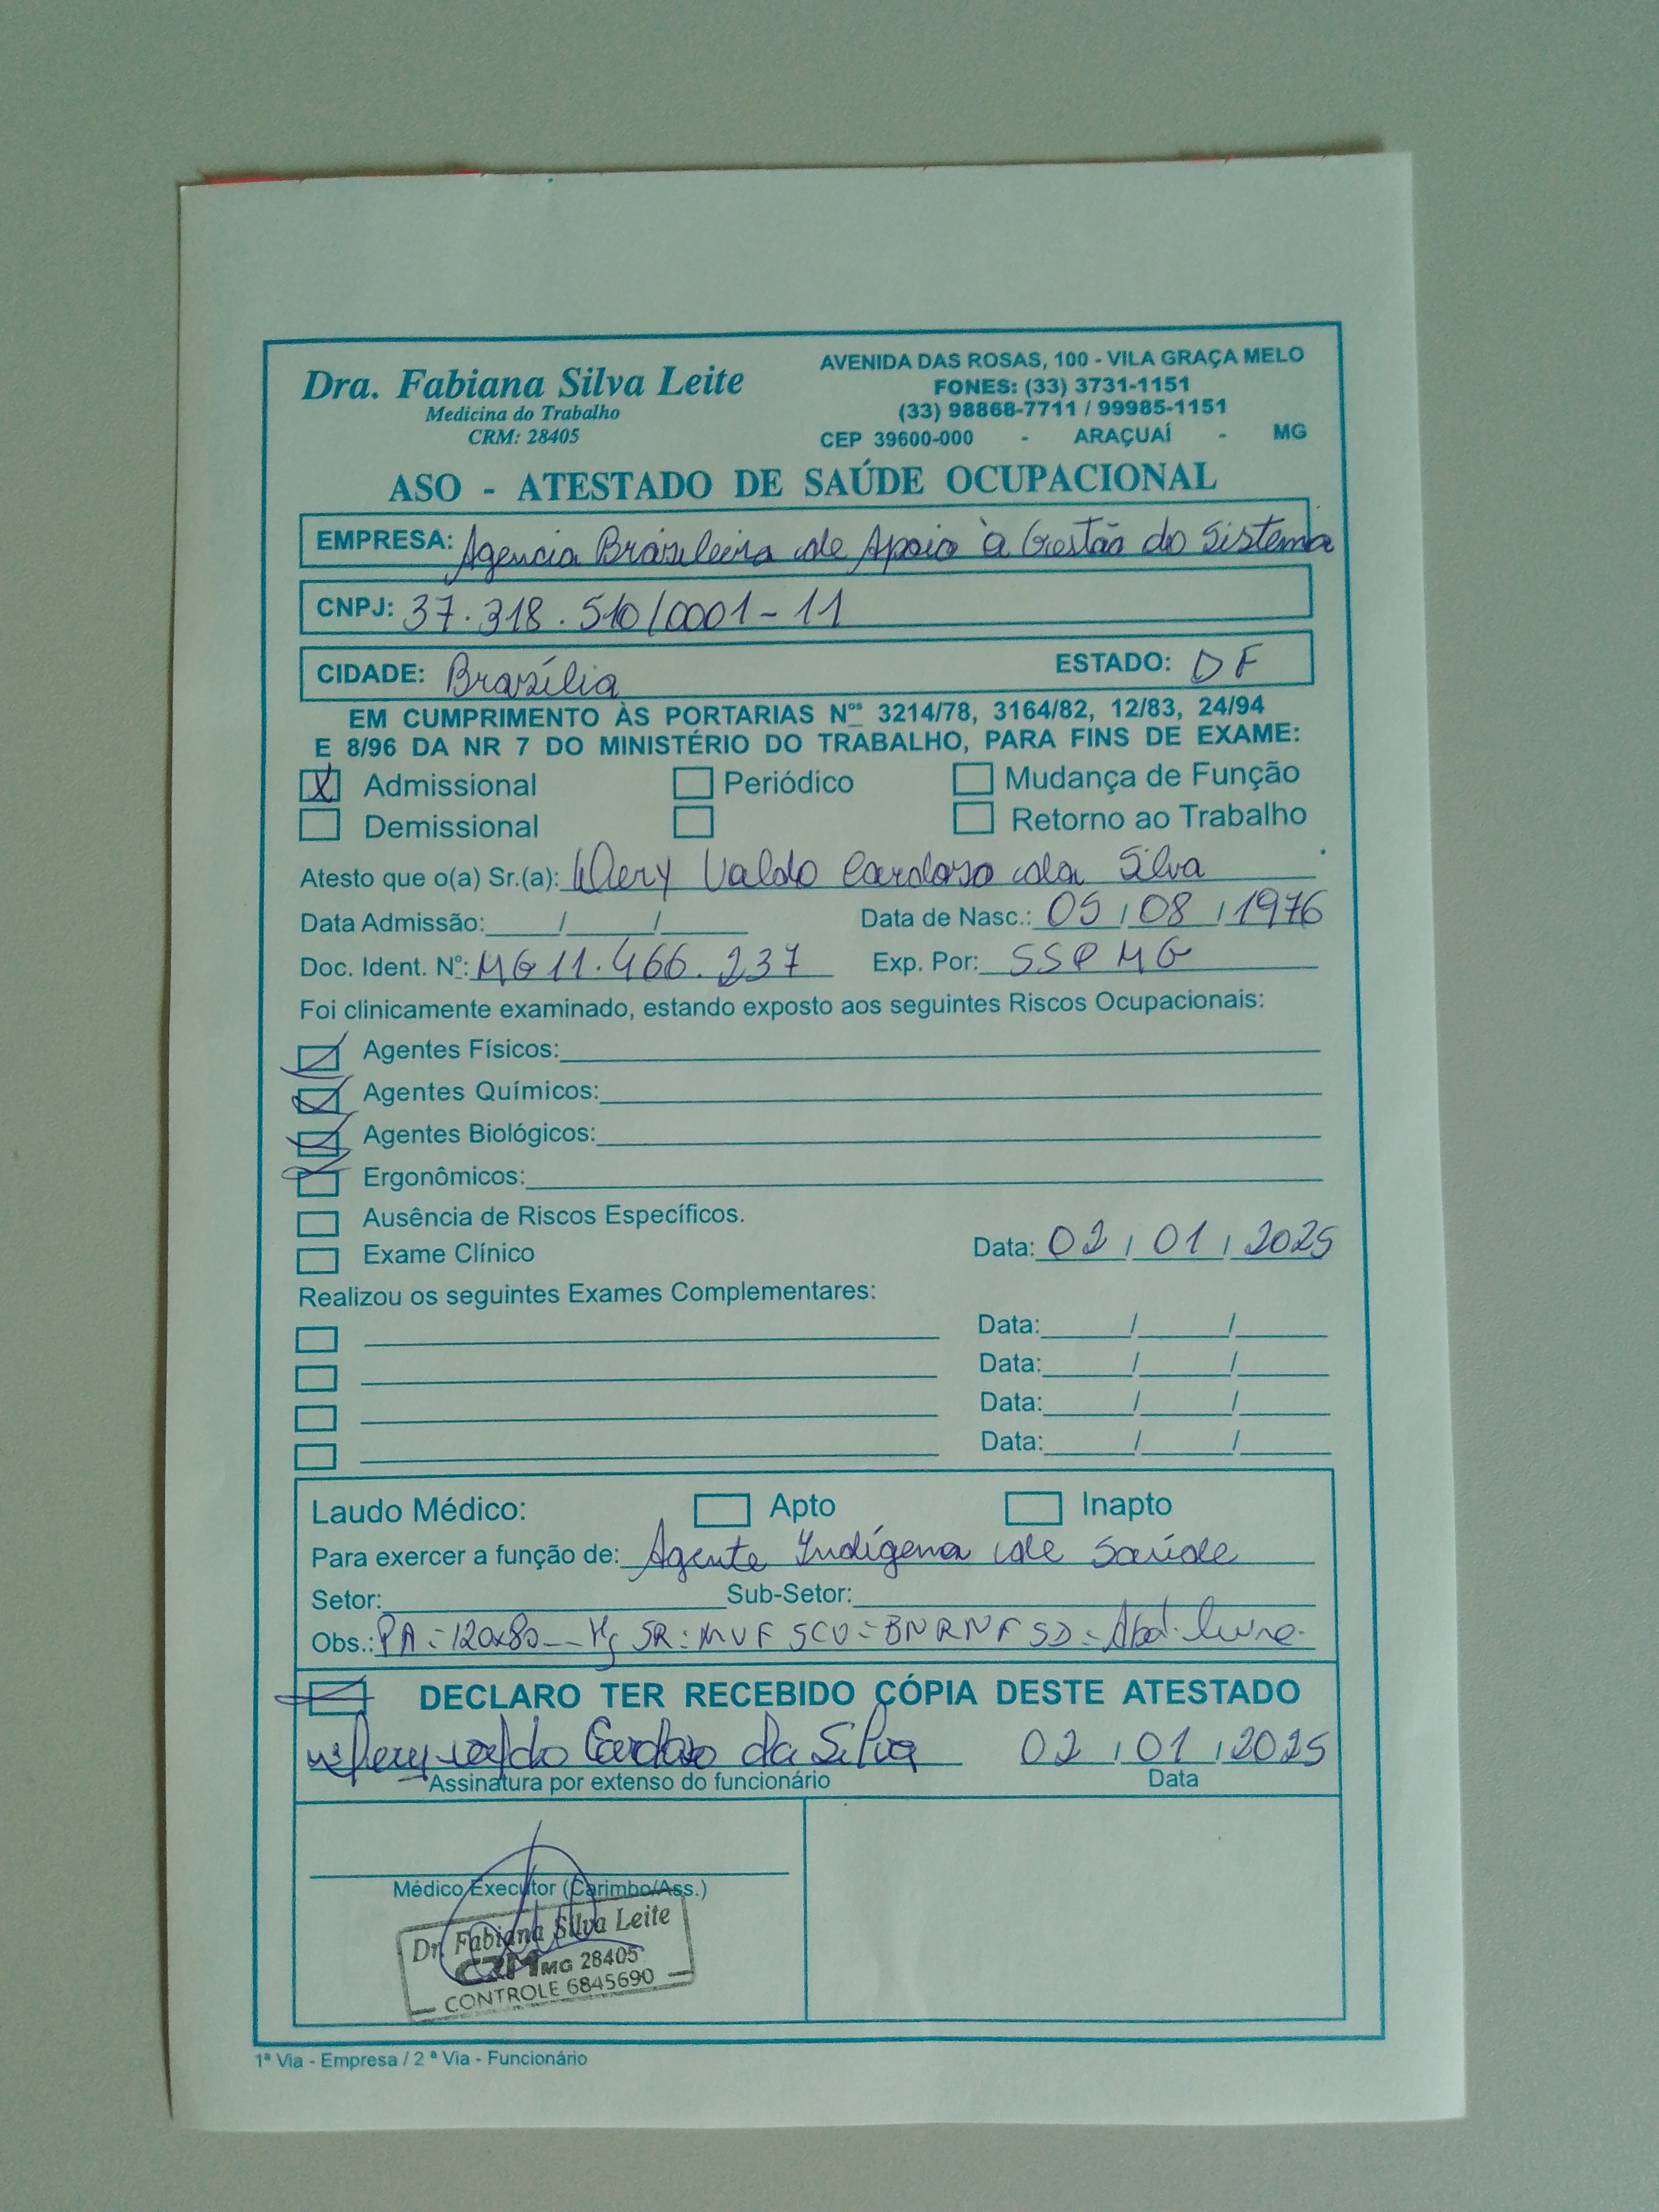 Dra. Fabiana Silva Leite
Medicina do Trabalho
CRM: 28405
AVENIDA DAS ROSAS, 100 - VILA GRAÇA MELO
FONES: (33) 3731-1151
(33) 98868-7711 / 99985-1151
CEP 39600-000 - ARAÇUAÍ - MG
ASO - ATESTADO DE SAÚDE OCUPACIONAL
EMPRESA: Agencia Brasileira de Apoio à Gestão do Sistema
CNPJ: 37.318.510/0001-11
CIDADE: Brasília ESTADO: DF
EM CUMPRIMENTO ÀS PORTARIAS Nºs 3214/78, 3164/82, 12/83, 24/94
E 8/96 DA NR 7 DO MINISTÉRIO DO TRABALHO, PARA FINS DE EXAME:
X Admissional Periódico Mudança de Função
Demissional Retorno ao Trabalho
Atesto que o(a) Sr.(a): Valdo Cardoso da Silva
Data Admissão: / / Data de Nasc.: 05/08/1976
Doc. Ident. Nº: MG 11.466.237 Exp. Por: SSP MG
Foi clinicamente examinado, estando exposto aos seguintes Riscos Ocupacionais:
Agentes Físicos:
Agentes Químicos:
Agentes Biológicos:
Ergonômicos:
Ausência de Riscos Específicos.
Exame Clínico Data: 02/01/2025
Realizou os seguintes Exames Complementares:
Data: / /
Data: / /
Data: / /
Data: / /
Laudo Médico: Apto Inapto
Para exercer a função de: Agente Indígena de Saúde
Setor: Sub-Setor:
Obs.: PA = 120x80 Hg SR: MVF SCV = BNRNF SD = Abd. livre.
DECLARO TER RECEBIDO CÓPIA DESTE ATESTADO
Cardoso da Silva 02/01/2025
Assinatura por extenso do funcionário Data
Médico Executor (Carimbo/Ass.)
Dr. Fabiana Silva Leite
CRM MG 28405
CONTROLE 6845690
1ª Via - Empresa / 2ª Via - Funcionário